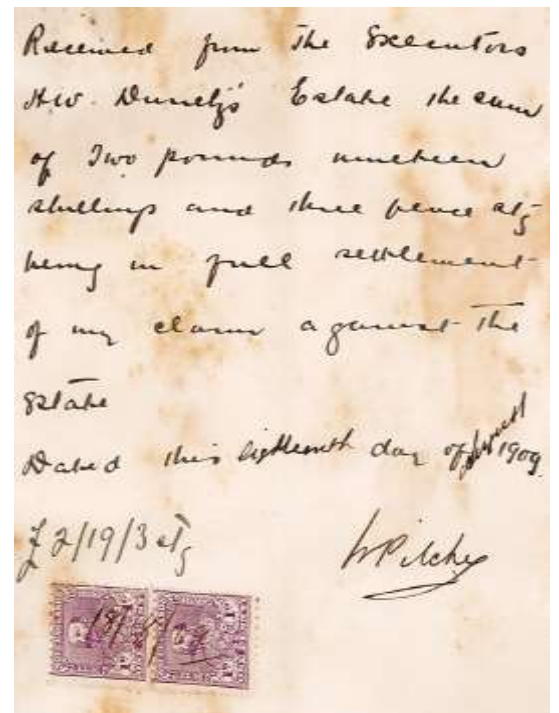 Received from the Executors
H.W. Estate the sum
of Two pounds nineteen
shillings and three pence stg
being in full settlement
of my claim against the
Estate
Dated this eighteenth day of August 1909.
£2/19/3 stg
W Pilcher
18/8/09